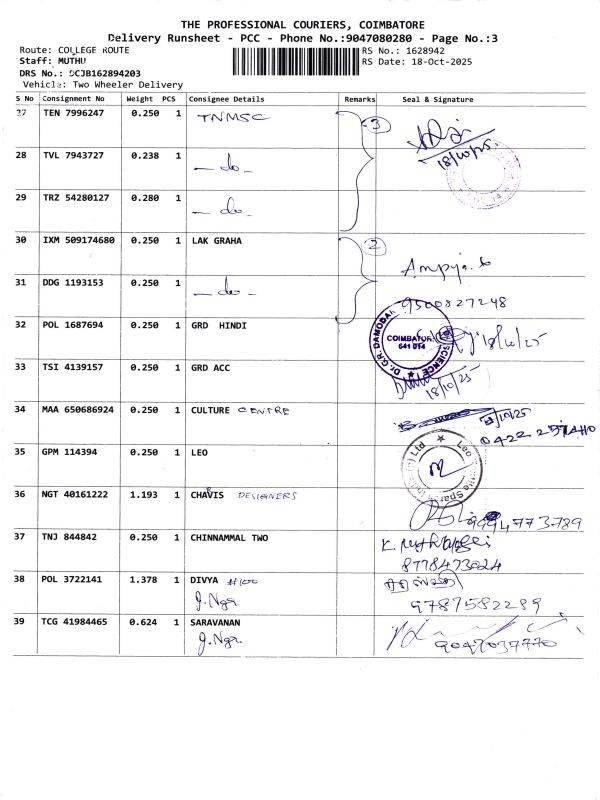 THE PROFESSIONAL COURIERS, COIMBATORE
Delivery Runsheet - PCC - Phone No.:9047080280 - Page No.:3
Route: COLLEGE ROUTE
RS No.: 1628942
Staff: MUTHU
RS Date: 18-Oct-2025
DRS No.: DCJB162894203
Vehicle: Two Wheeler Delivery
S No Consignment No Weight PCS Consignee Details Remarks Seal & Signature
27 TEN 7996247 0.250 1 TNMSC 3
18/10/25
28 TVL 7943727 0.238 1 — do —
29 TRZ 54280127 0.280 1 — do —
30 IXM 509174680 0.250 1 LAK GRAHA 2
31 DDG 1193153 0.250 1 — do —
9500827248
32 POL 1687694 0.250 1 GRD HINDI
Dr. G.R. DAMODARAN SCIENCE
COIMBATORE
641 014
33 TSI 4139157 0.250 1 GRD ACC
18/10/25
34 MAA 650686924 0.250 1 CULTURE CENTRE
35 GPM 114394 0.250 1 LEO
Leo
36 NGT 40161222 1.193 1 CHAVIS DESIGNERS
9994773789
37 TNJ 844842 0.250 1 CHINNAMMAL TWO
8778473024
38 POL 3722141 1.378 1 DIVYA #100
J. Ngr
9787582289
39 TCG 41984465 0.624 1 SARAVANAN
J. Ngr
9047037770